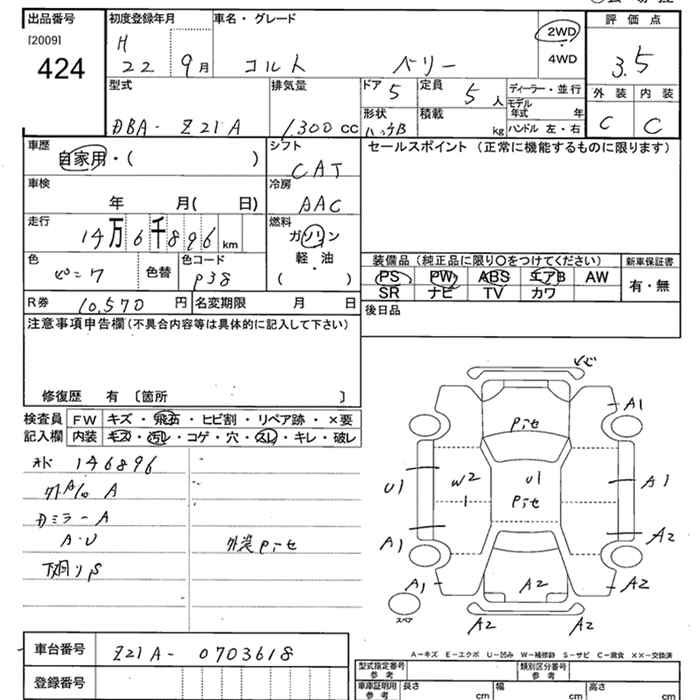 出品番号 初度登録年月 車名・グレード 評価点
[2009] H 2WD
424 22 9月 コルト ベリー 4WD 3.5
型式 排気量 ドア 5 定員 5人 ディーラー・並行 外装 内装
DBA- Z21A 1300cc 形状 ハッチB 積載 kg モデル年式 年 C C
ハンドル 左・右
車歴 シフト セールスポイント (正常に機能するものに限ります)
自家用・( ) CAT
車検 冷房
年 月( 日) AAC
走行 燃料
14万6千896km ガソリン
軽・油
色 色替 色コード ( ) 装備品 (純正品に限り○をつけてください) 新車保証書
ピンク P38 PS PW ABS エアB AW 有・無
SR ナビ TV カワ
R券 10,570円 名変期限 月 日 後日品
注意事項申告欄(不具合内容等は具体的に記入して下さい)
修復歴 有 〔箇所 〕
検査員 FW キズ・飛石・ヒビ割・リペア跡・×要
記入欄 内装 キズ・汚レ・コゲ・穴・スレ・キレ・破レ
146896
A
Dミラー A
A・U 外装Pieせ
下廻りS
A1
Pieせ
U1 W2 U1 A1
1 Pieせ
A1 A2
A1 A2 A2
スペア A2 A2
A-キズ E-エクボ U-凹み W-補修跡 S-サビ C-腐食 ××-交換済
車台番号 Z21A- 0703618
型式指定番号 参考 類別区分番号 参考
登録番号 車庫証明用 参考 長さ cm 幅 cm 高さ cm